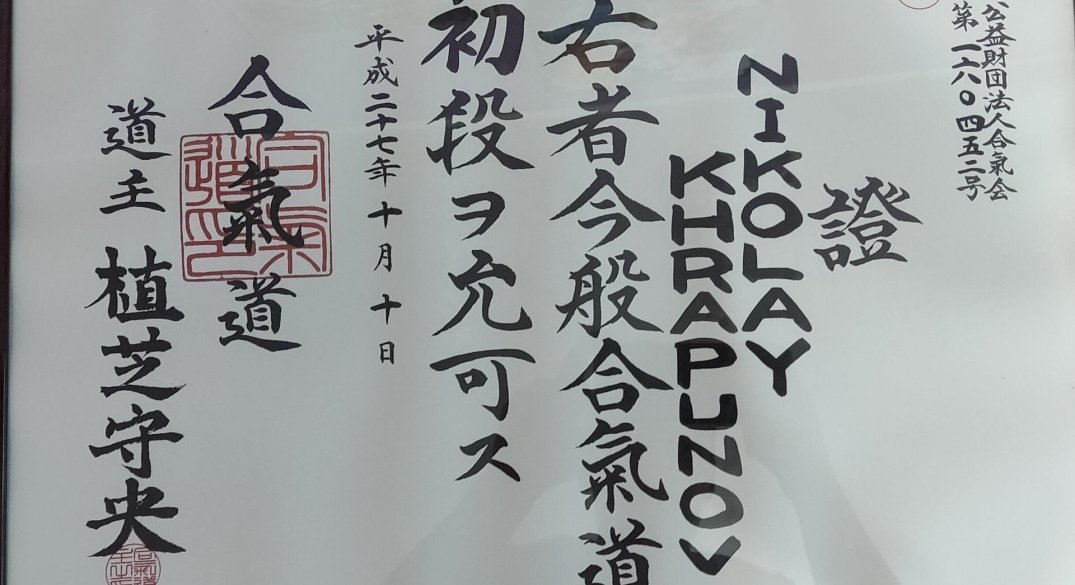 公益財団法人合氣会
第一六〇四五二号
證
NIKOLAY
KHRAPUNOV
右者今般合氣道
初段ヲ允可ス
平成二十七年十月十日
合氣道
道主 植芝守央